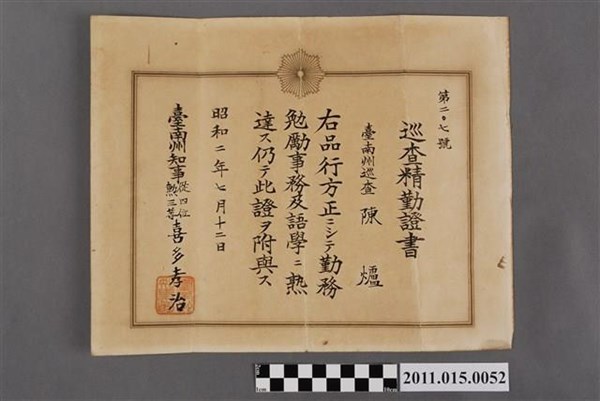 第二〇七號
巡查精勤證書
臺南州巡查 陳爐
右品行方正ニシテ勤務
勉勵事務及語學ニ熟
達ス仍テ此證ヲ附與ス
昭和二年七月十二日
臺南州知事從四位勲三等喜多孝治
2011.015.0052